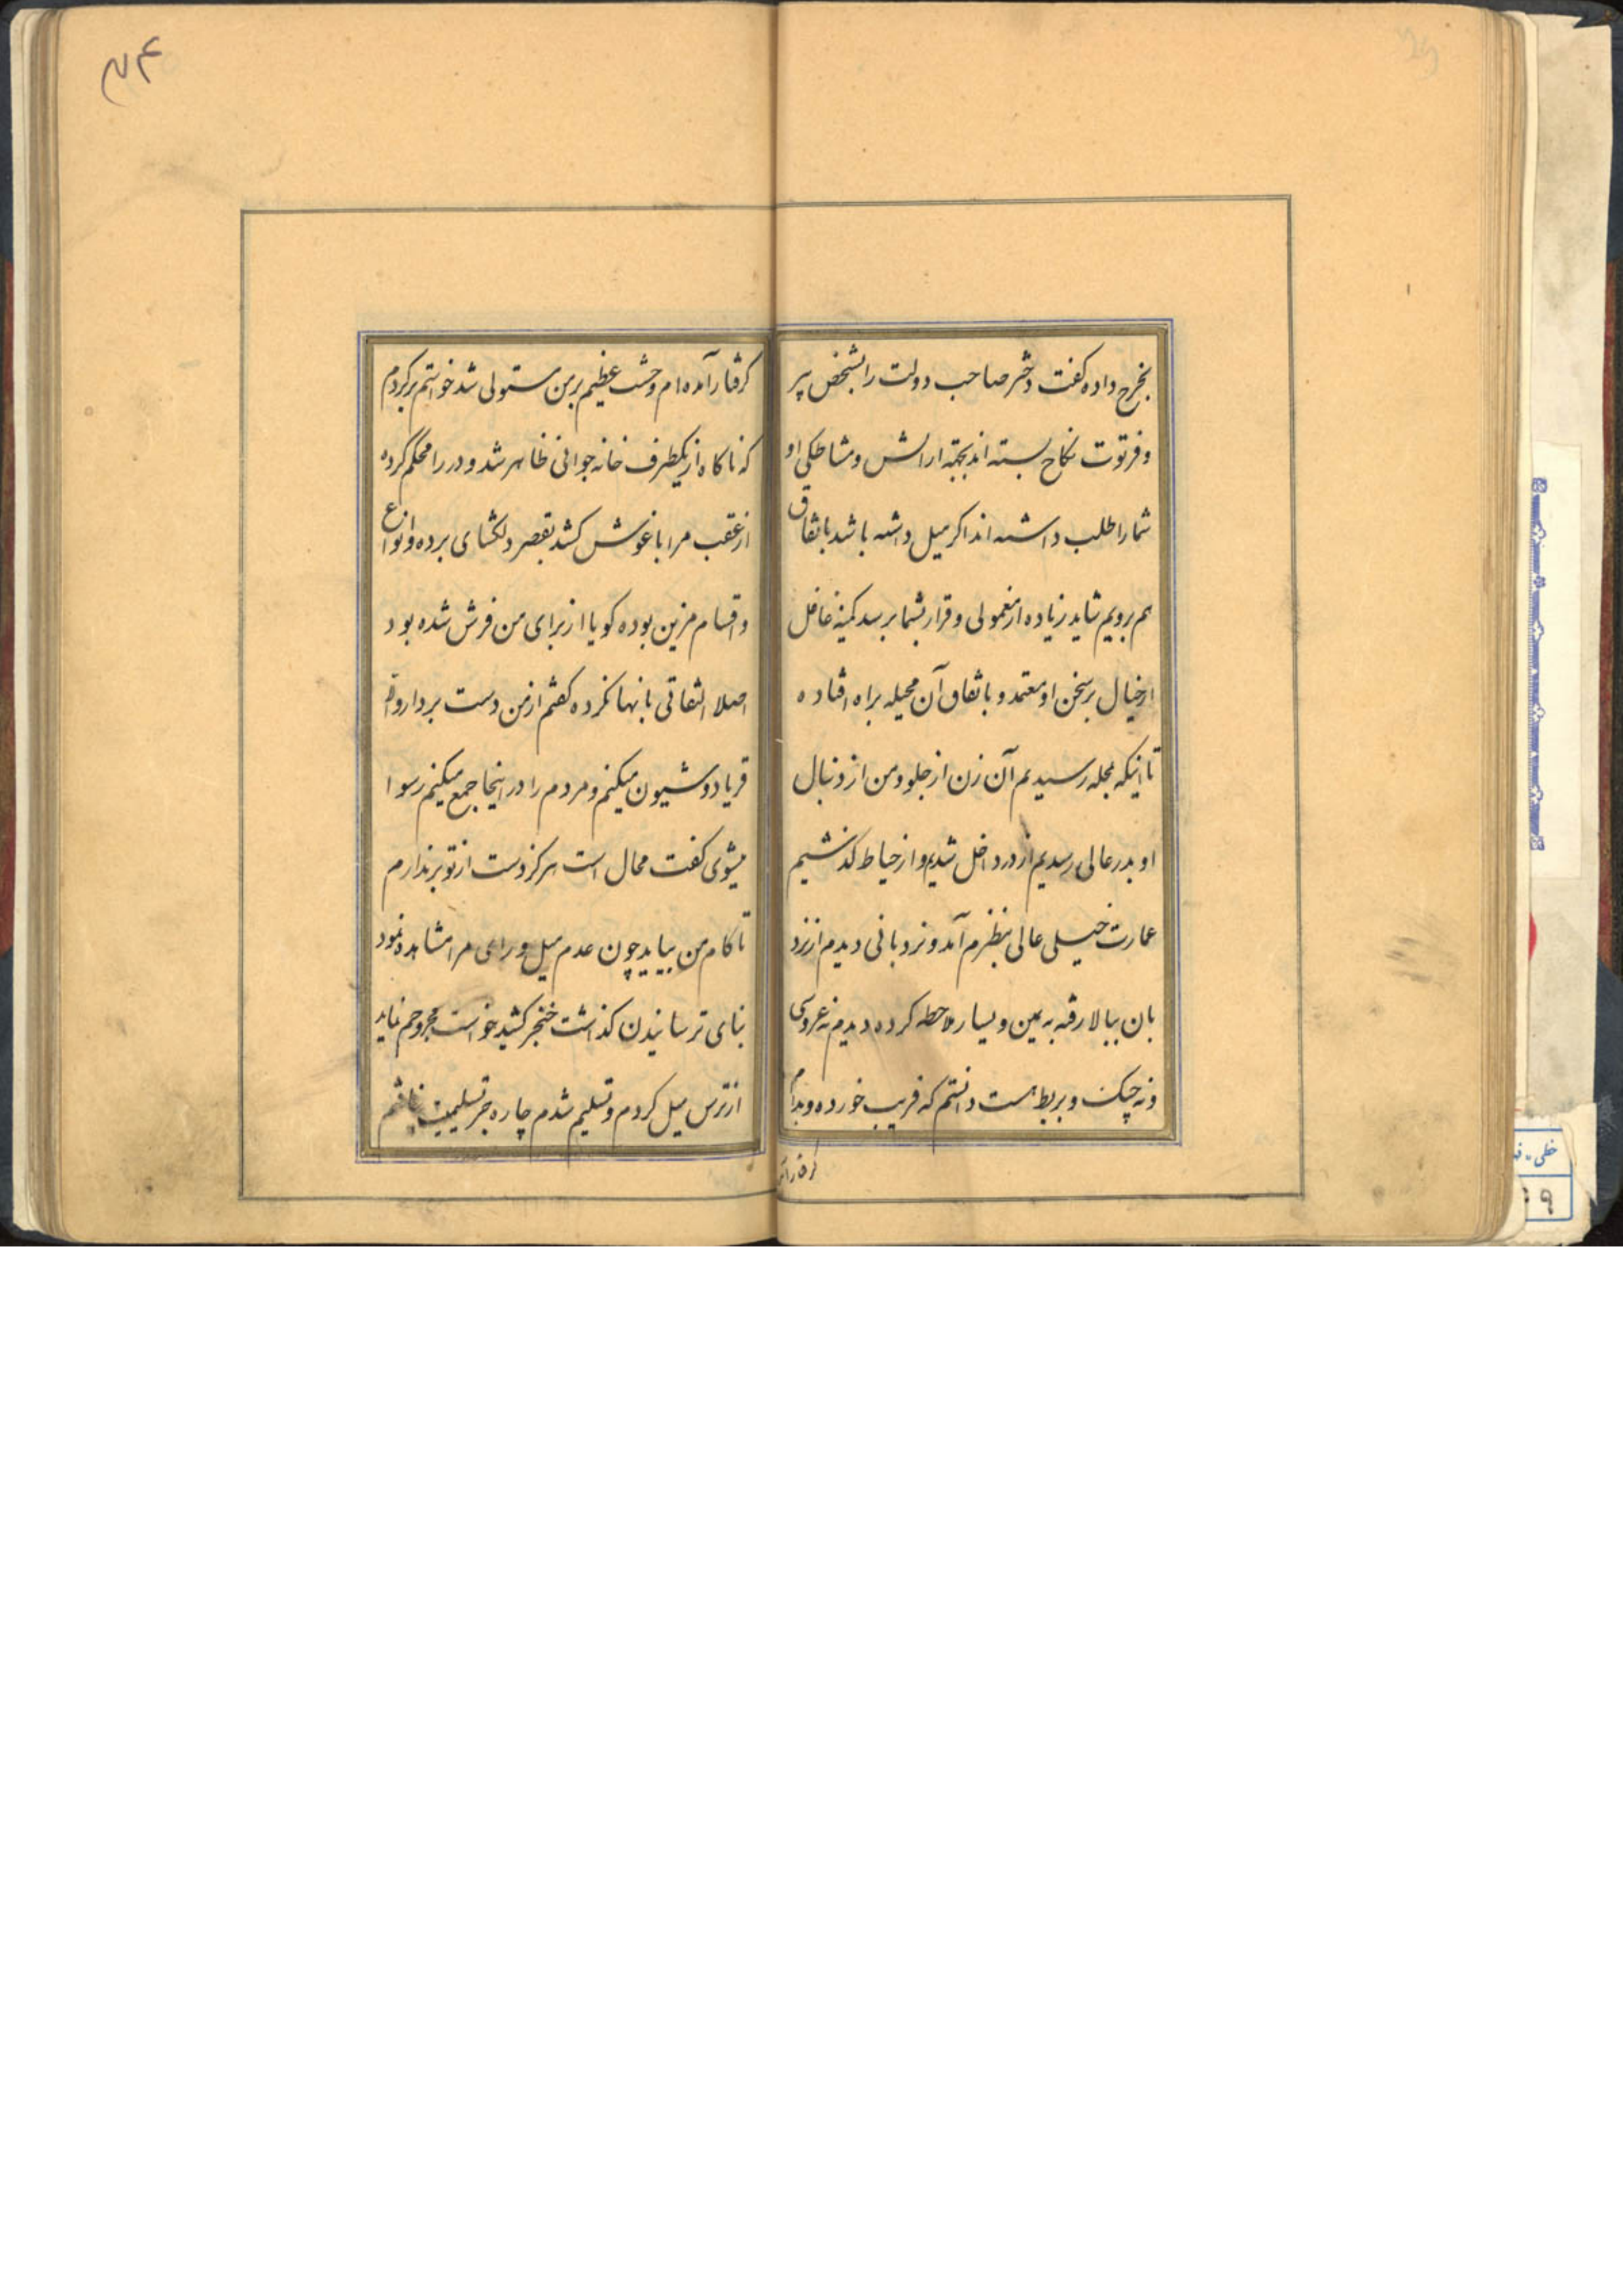 بخرج داده کفت دختر صاحب دولت را بشخص پیر
و فرتوت نکاح بسته اند بجهته ارایش و مشاطکی او
شما را طلب داشته اند اکر میل داشته باشد باتفاق
هم برویم شاید زیاده از معمولی و قرار بشما برسد کمینه غافل
از خیال بر سخن او معتمد و باتفاق آن محیله براه افتاده
تا اینکه بمحله رسیدیم آن زن از جلو و من از دنبال
او بدر عالی رسیدیم از در داخل شدیم و از حیاط کذشتیم
عمارت خیلی عالی بنظرم آمد و نردبانی دیدم از نرد
بان ببالا رفته به یمین و یسار ملاحظه کرده دیدم نه عروسی
و نه چنک و بربط هست دانستم که فریب خورده و بدام
کرفتار آمده
۲۴
کرفتار آمده ام وحشت عظیم بر من مستولی شد خواستم برکردم
که ناکاه از یکطرف خانه جوانی ظاهر شد و در را محکم کرده
از عقب مرا باغوش کشد بقصر دلکشای برده و انواع
و اقسام مزین بوده کویا از برای من فرش شده بود
اصلا التفاتی بانها نکرده کفتم از من دست بردار والا
فریاد و شیون میکنم و مردم را در اینجا جمع میکنم رسوا
میشوی کفت محال است هرکز دست از تو برندارم
تا کام من بیاید چون عدم میل و رای مرا مشاهده نمود
بنای ترسانیدن کذاشت خنجر کشید خواست مجروحم نماید
از ترس میل کردم و تسلیم شدم چاره جز تسلیمیت نداشتم
خطی
۹